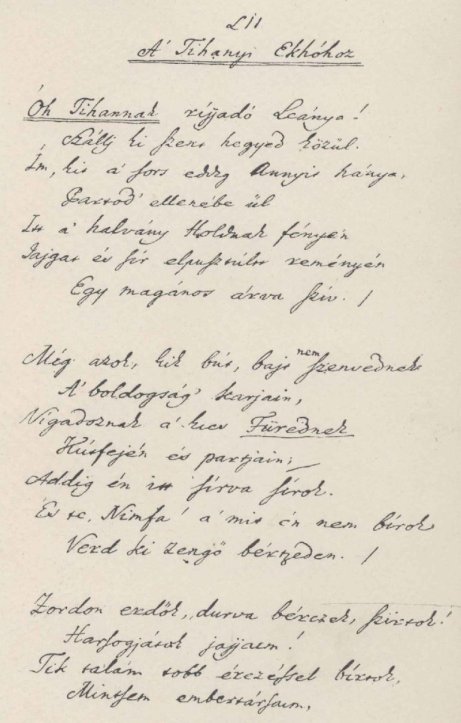 LII
A' Tihanyi Ekhóhoz
Óh Tihannak rijjadó Leánya!
Szállj ki szent hegyed közűl.
Ím, kit a' sors eddig Annyit hánya,
Partod' ellenébe űl
Itt a' halvány Holdnak fényén
Jajgat és sír elpusztúltt reményén
Egy magános árva szív. /
Még azok, kik bút, bajt nem szenvednek
A' boldogság' karjain,
Vigadoznak a' kies Fürednek
Kútfején és partjain;
Addig én itt sírva sírok.
És te, Nimfa! a' mit én nem bírok
Verd ki zengő bértzeden. /
Zordon erdők, durva bérczek, szirtok!
Harsogjátok jajjaim!
Tik talám több érezéssel bírtok,
Mintsem embertársaim,